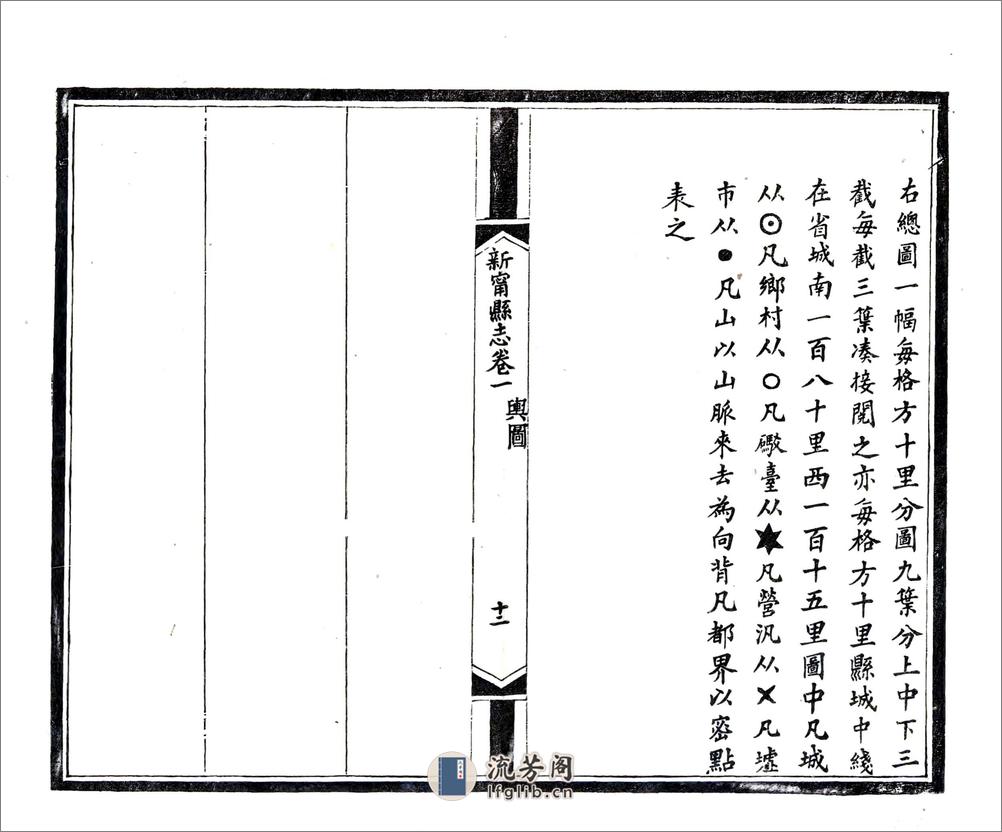 右總圖一幅每格方十里分圖九葉分上中下三
截每截三葉凑接閱之亦每格方十里縣城中綫
在省城南一百八十里西一百十五里圖中凡城
从⊙凡鄉村从○凡礮臺从✶凡營汛从✕凡墟
市从●凡山以山脈來去為向背凡都界以密點
表之
新甯縣志卷一
輿圖
十二
流芳阁
lfglib.cn